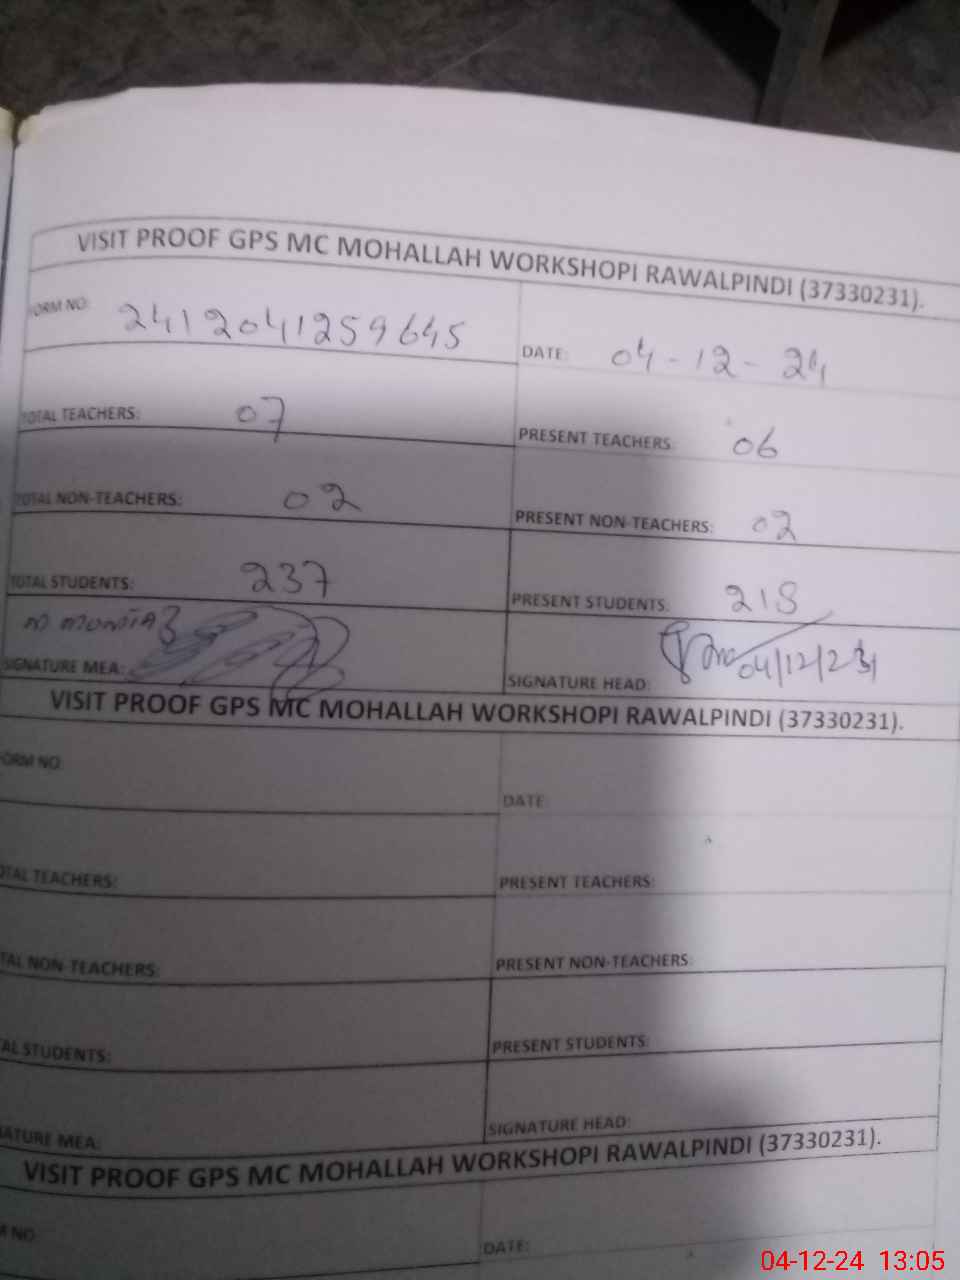 VISIT PROOF GPS MC MOHALLAH WORKSHOPI RAWALPINDI (37330231).
FORM NO: 2412041259645
DATE: 04-12-24
TOTAL TEACHERS: 07
PRESENT TEACHERS: 06
TOTAL NON-TEACHERS: 02
PRESENT NON-TEACHERS: 02
TOTAL STUDENTS: 237
PRESENT STUDENTS: 218
SIGNATURE MEA:
SIGNATURE HEAD: 04/12/24
VISIT PROOF GPS MC MOHALLAH WORKSHOPI RAWALPINDI (37330231).
ORM NO:
DATE:
OTAL TEACHERS:
PRESENT TEACHERS:
TAL NON-TEACHERS:
PRESENT NON-TEACHERS:
AL STUDENTS:
PRESENT STUDENTS:
NATURE MEA:
SIGNATURE HEAD:
VISIT PROOF GPS MC MOHALLAH WORKSHOPI RAWALPINDI (37330231).
M NO:
DATE:
04-12-24 13:05